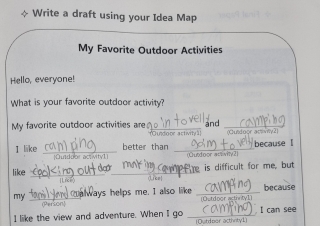 ✧ Write a draft using your Idea Map
My Favorite Outdoor Activities
Hello, everyone!
What is your favorite outdoor activity?
My favorite outdoor activities are going to velly and camping
(Outdoor activity1) (Outdoor activity2)
I like camping better than going to velly because I
(Outdoor activity1) (Outdoor activity2)
like cooking outdoor making campfire is difficult for me, but
(Like) (Like)
my family and always helps me. I also like camping because
(Person) (Outdoor activity1)
I like the view and adventure. When I go camping I can see
(Outdoor activity1)